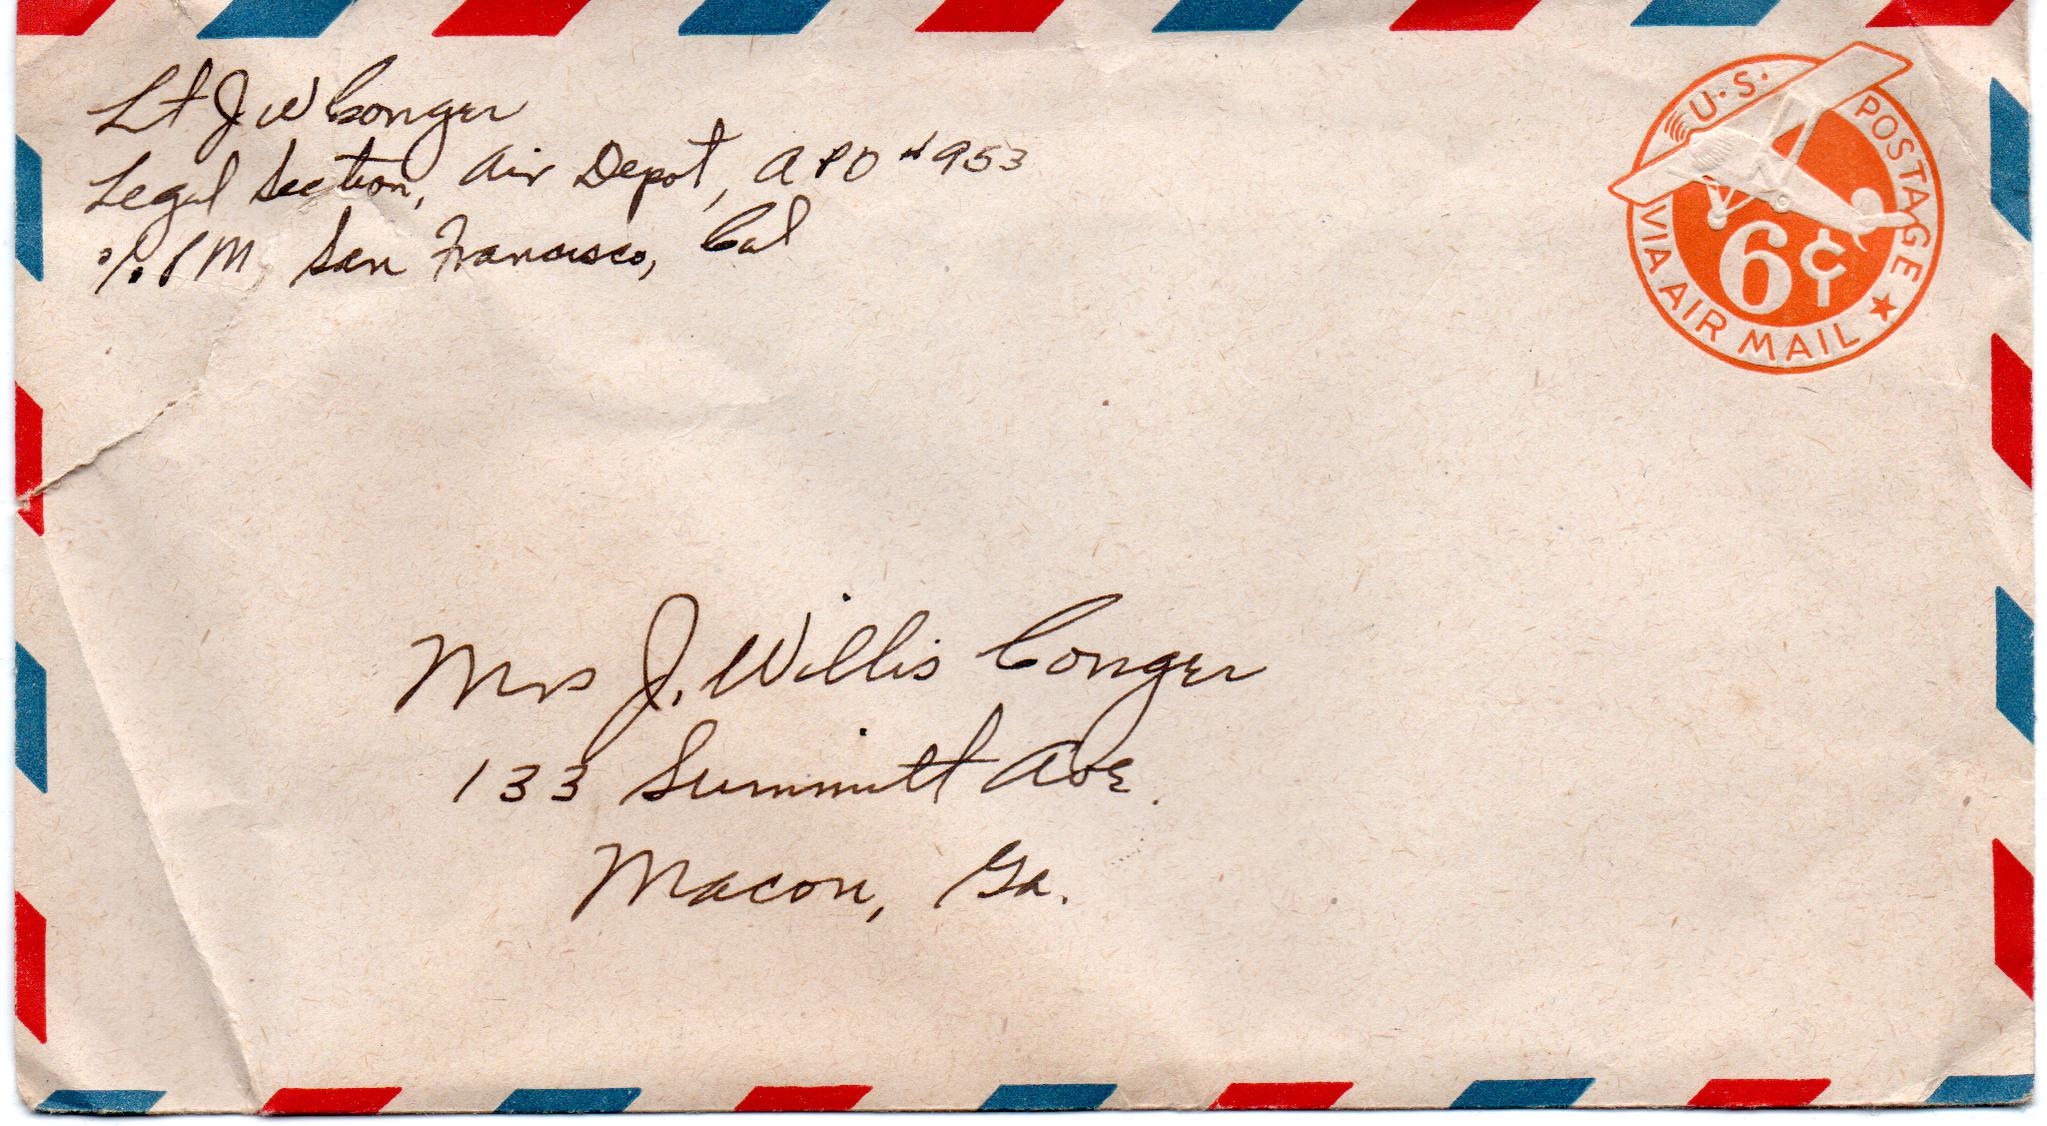 Lt J W Conger
Legal Section, Air Depot, APO #953
% PM, San Francisco, Cal
U.S. POSTAGE
VIA AIR MAIL
6¢
Mrs J. Willis Conger
133 Summitt Ave.
Macon, Ga.